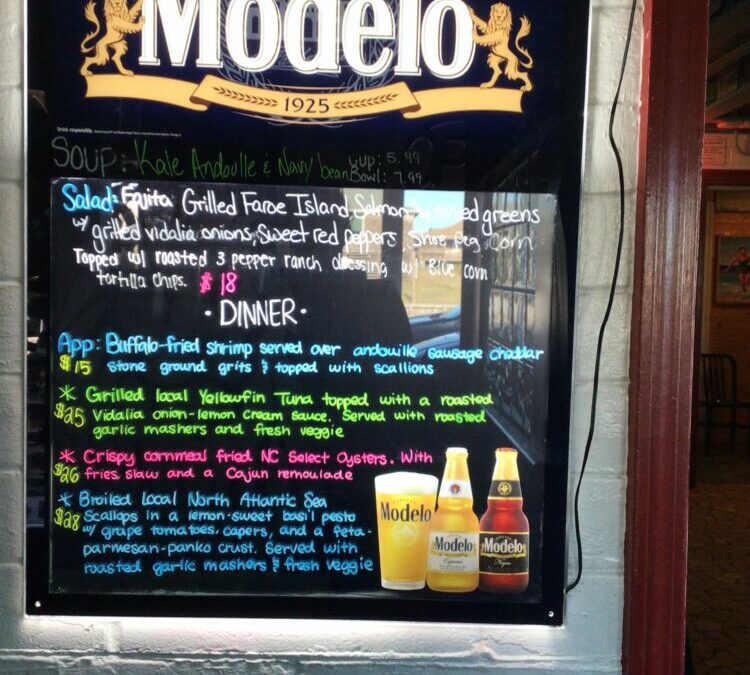 Modelo
1925
Drink responsibly.
Soup: Kale Andoulle & Navy bean cup: 5.99
Bowl: 7.99
Salad: Fajita Grilled Faroe Island Salmon mixed greens
w/ grilled vidalia onions, Sweet red peppers, Shoe Peg Corn
Topped w/ roasted 3 pepper ranch dressing w/ Blue corn
tortilla chips. $18
• DINNER •
App: Buffalo-fried shrimp served over andouille sausage cheddar
$15 stone ground grits & topped with scallions
* Grilled local Yellowfin Tuna topped with a roasted
$25 Vidalia onion-lemon cream sauce. Served with roasted
garlic mashers and fresh veggie
* Crispy cornmeal fried NC Select Oysters. With
$26 fries, slaw and a Cajun remoulade
* Broiled Local North Atlantic Sea
$28 Scallops in a lemon-sweet basil pesto
w/ grape tomatoes, capers, and a feta-
parmesan-panko crust. Served with
roasted garlic mashers & fresh veggie
Modelo
Modelo
Especial
Modelo
Negra